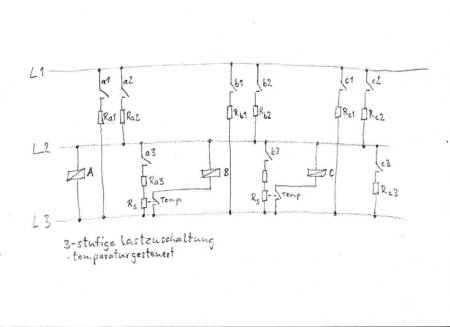 L1
a1 a2 b1 b2 c1 c2
Ra1 Ra2 Rb1 Rb2 Rc1 Rc2
L2
a3 b3 c3
A B C
Ra3 Rc3
Rs Temp Rs Temp
L3
3-stufige Lastzuschaltung
-temperaturgesteuert